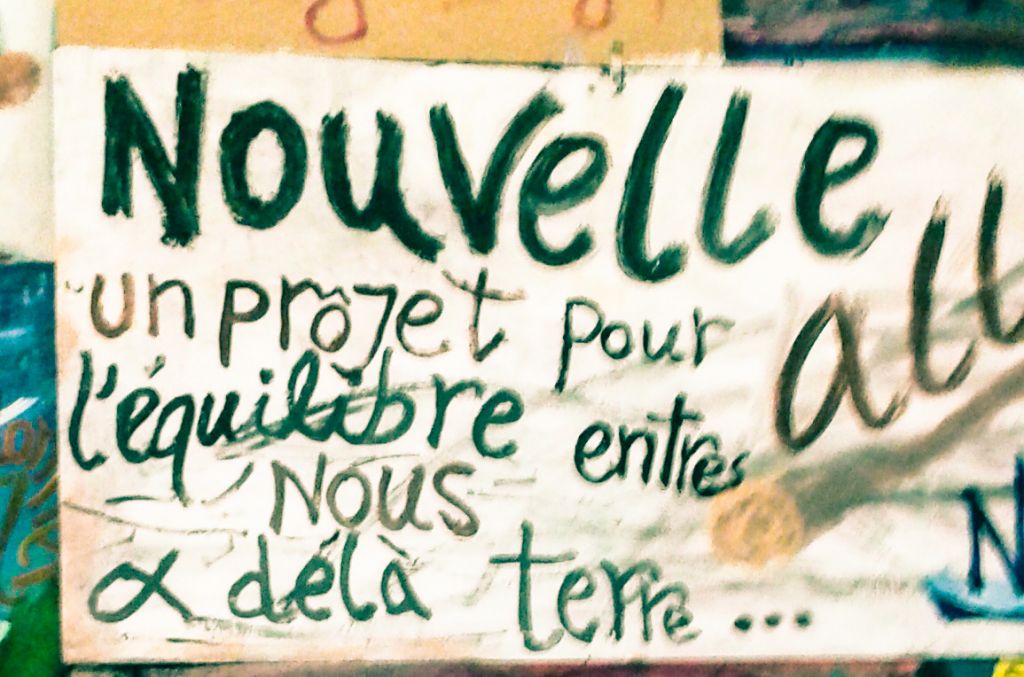 Nouvelle
un prôjet pour
l'équilibre entres
Nous
α délà terre...
all
N